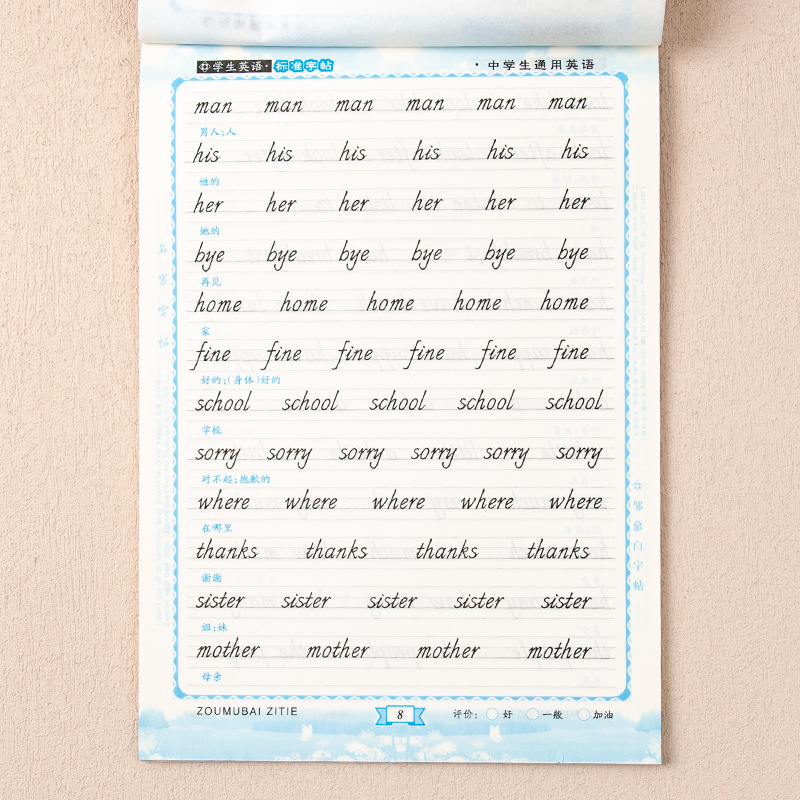 学生英语·标准字帖 ·中学生通用英语
man man man man man man
男人;人
his his his his his his
他的
her her her her her her
她的
bye bye bye bye bye bye
再见
home home home home home
家
fine fine fine fine fine fine
好的;(身体)好的
school school school school school
学校
sorry sorry sorry sorry sorry sorry
对不起;抱歉的
where where where where where
在哪里
thanks thanks thanks thanks
谢谢
sister sister sister sister sister
姐;妹
mother mother mother mother
母亲
名家字帖
邹慕白字帖
ZOUMUBAI ZITIE 8 评价: 好 一般 加油